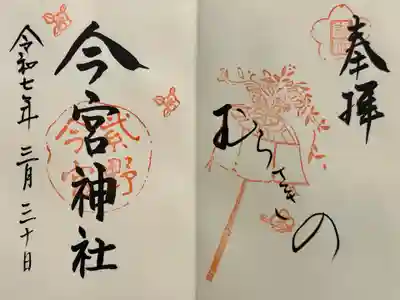 奉拝
むらさきの
今宮神社
令和七年 三月 三十日
紫野
今宮